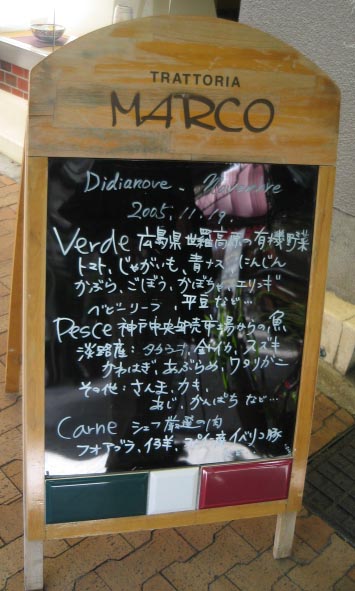 TRATTORIA
MARCO
Didianove - Novembre
2005.11.19.
Verde 広島県世羅高原の有機野菜
トマト、じゃがいも、青ナス にんじん
かぶら、ごぼう、かぼちゃ、エリンギ
ベビーリーフ 平豆など…
Pesce 神戸中央卸売市場からの魚
淡路産: タチウオ、金イカ、スズキ
かわはぎ、あぶらめ、ワタリガニ
その他: さんま、カキ、
あじ、かんぱち など…
Carne シェフ厳選の肉
フォアグラ、仔羊、スペイン産イベリコ豚